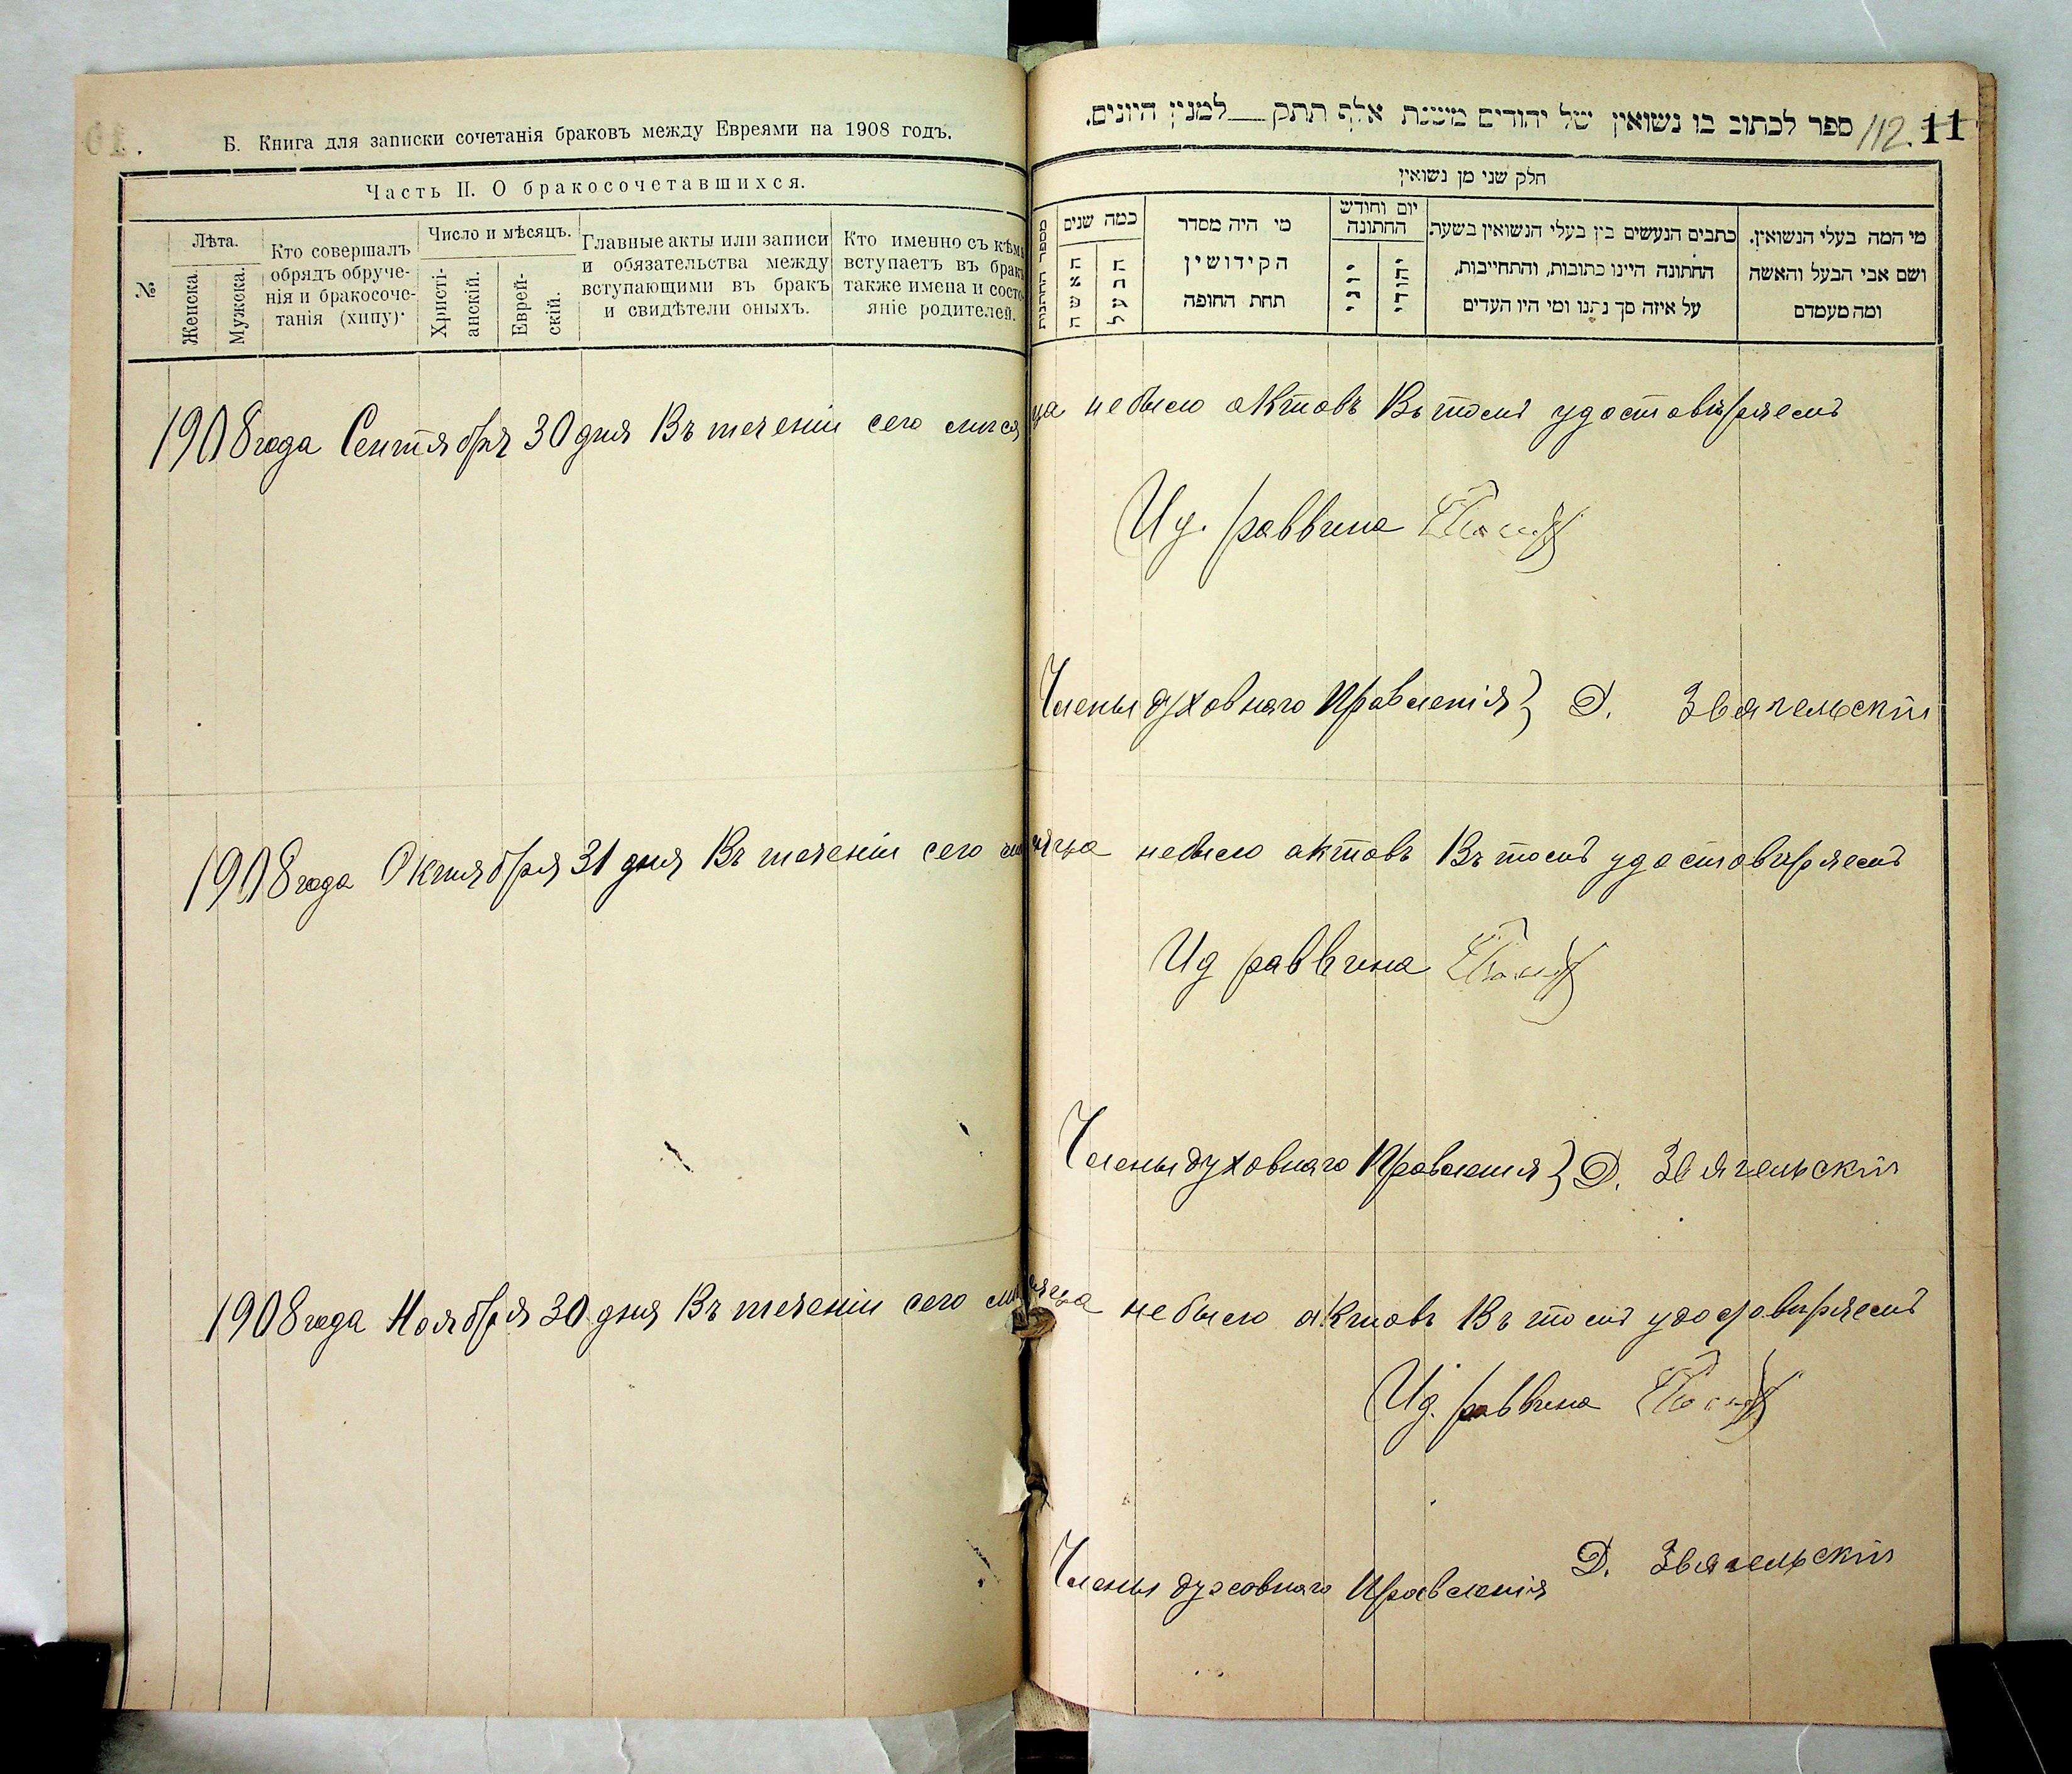 Б. Книга для записки сочетанія браковъ между Евреями на 1908 годъ.
Часть II. О бракосочетавшихся.
№
Лѣта.
Женска.
Мужска.
Кто совершалъ
обрядъ обруче-
нія и бракосоче-
танія (хипу)·
Число и мѣсяцъ.
Христі-
анскій.
Еврей-
скій.
Главные акты или записи
и обязательства между
вступающими въ бракъ
и свидѣтели оныхъ.
Кто именно съ кѣмъ
вступаетъ въ бракъ
также имена и состо-
яніе родителей.
ספר לכתוב בו נשואין של יהודים משנת אלף תתק__למנין היונים.
112. 11
חלק שני מן נשואין
מי המה בעלי הנשואין.
ושם אבי הבעל והאשה
ומה מעמדם
כתבים הנעשים בין בעלי הנשואין בשעת
החתונה היינו כתובות, והתחייבות,
על איזה סך נתנו ומי היו העדים
יום וחודש
החתונה
יהודי
יוני
מי היה מסדר
הקידושין
תחת החופה
כמה שנים
הבעל
האשה
מספר החתונות
1908 года Сентября 30 дня Въ теченіи сего мѣсяца небыло актовъ Въ томъ удостовѣряемъ
И д. раввина
Члены духовнаго Правленія } Д. Звягельскій
1908 года Октября 31 дня Въ теченіи сего мѣсяца небыло актовъ Въ томъ удостовѣряемъ
И д раввина
Члены духовнаго Правленія } Д. Звягельскій
1908 года Ноября 30 дня Въ теченіи сего мѣсяца небыло актовъ Въ томъ удостовѣряемъ
И д. раввина
Члены духовнаго Правленія Д. Звягельскій